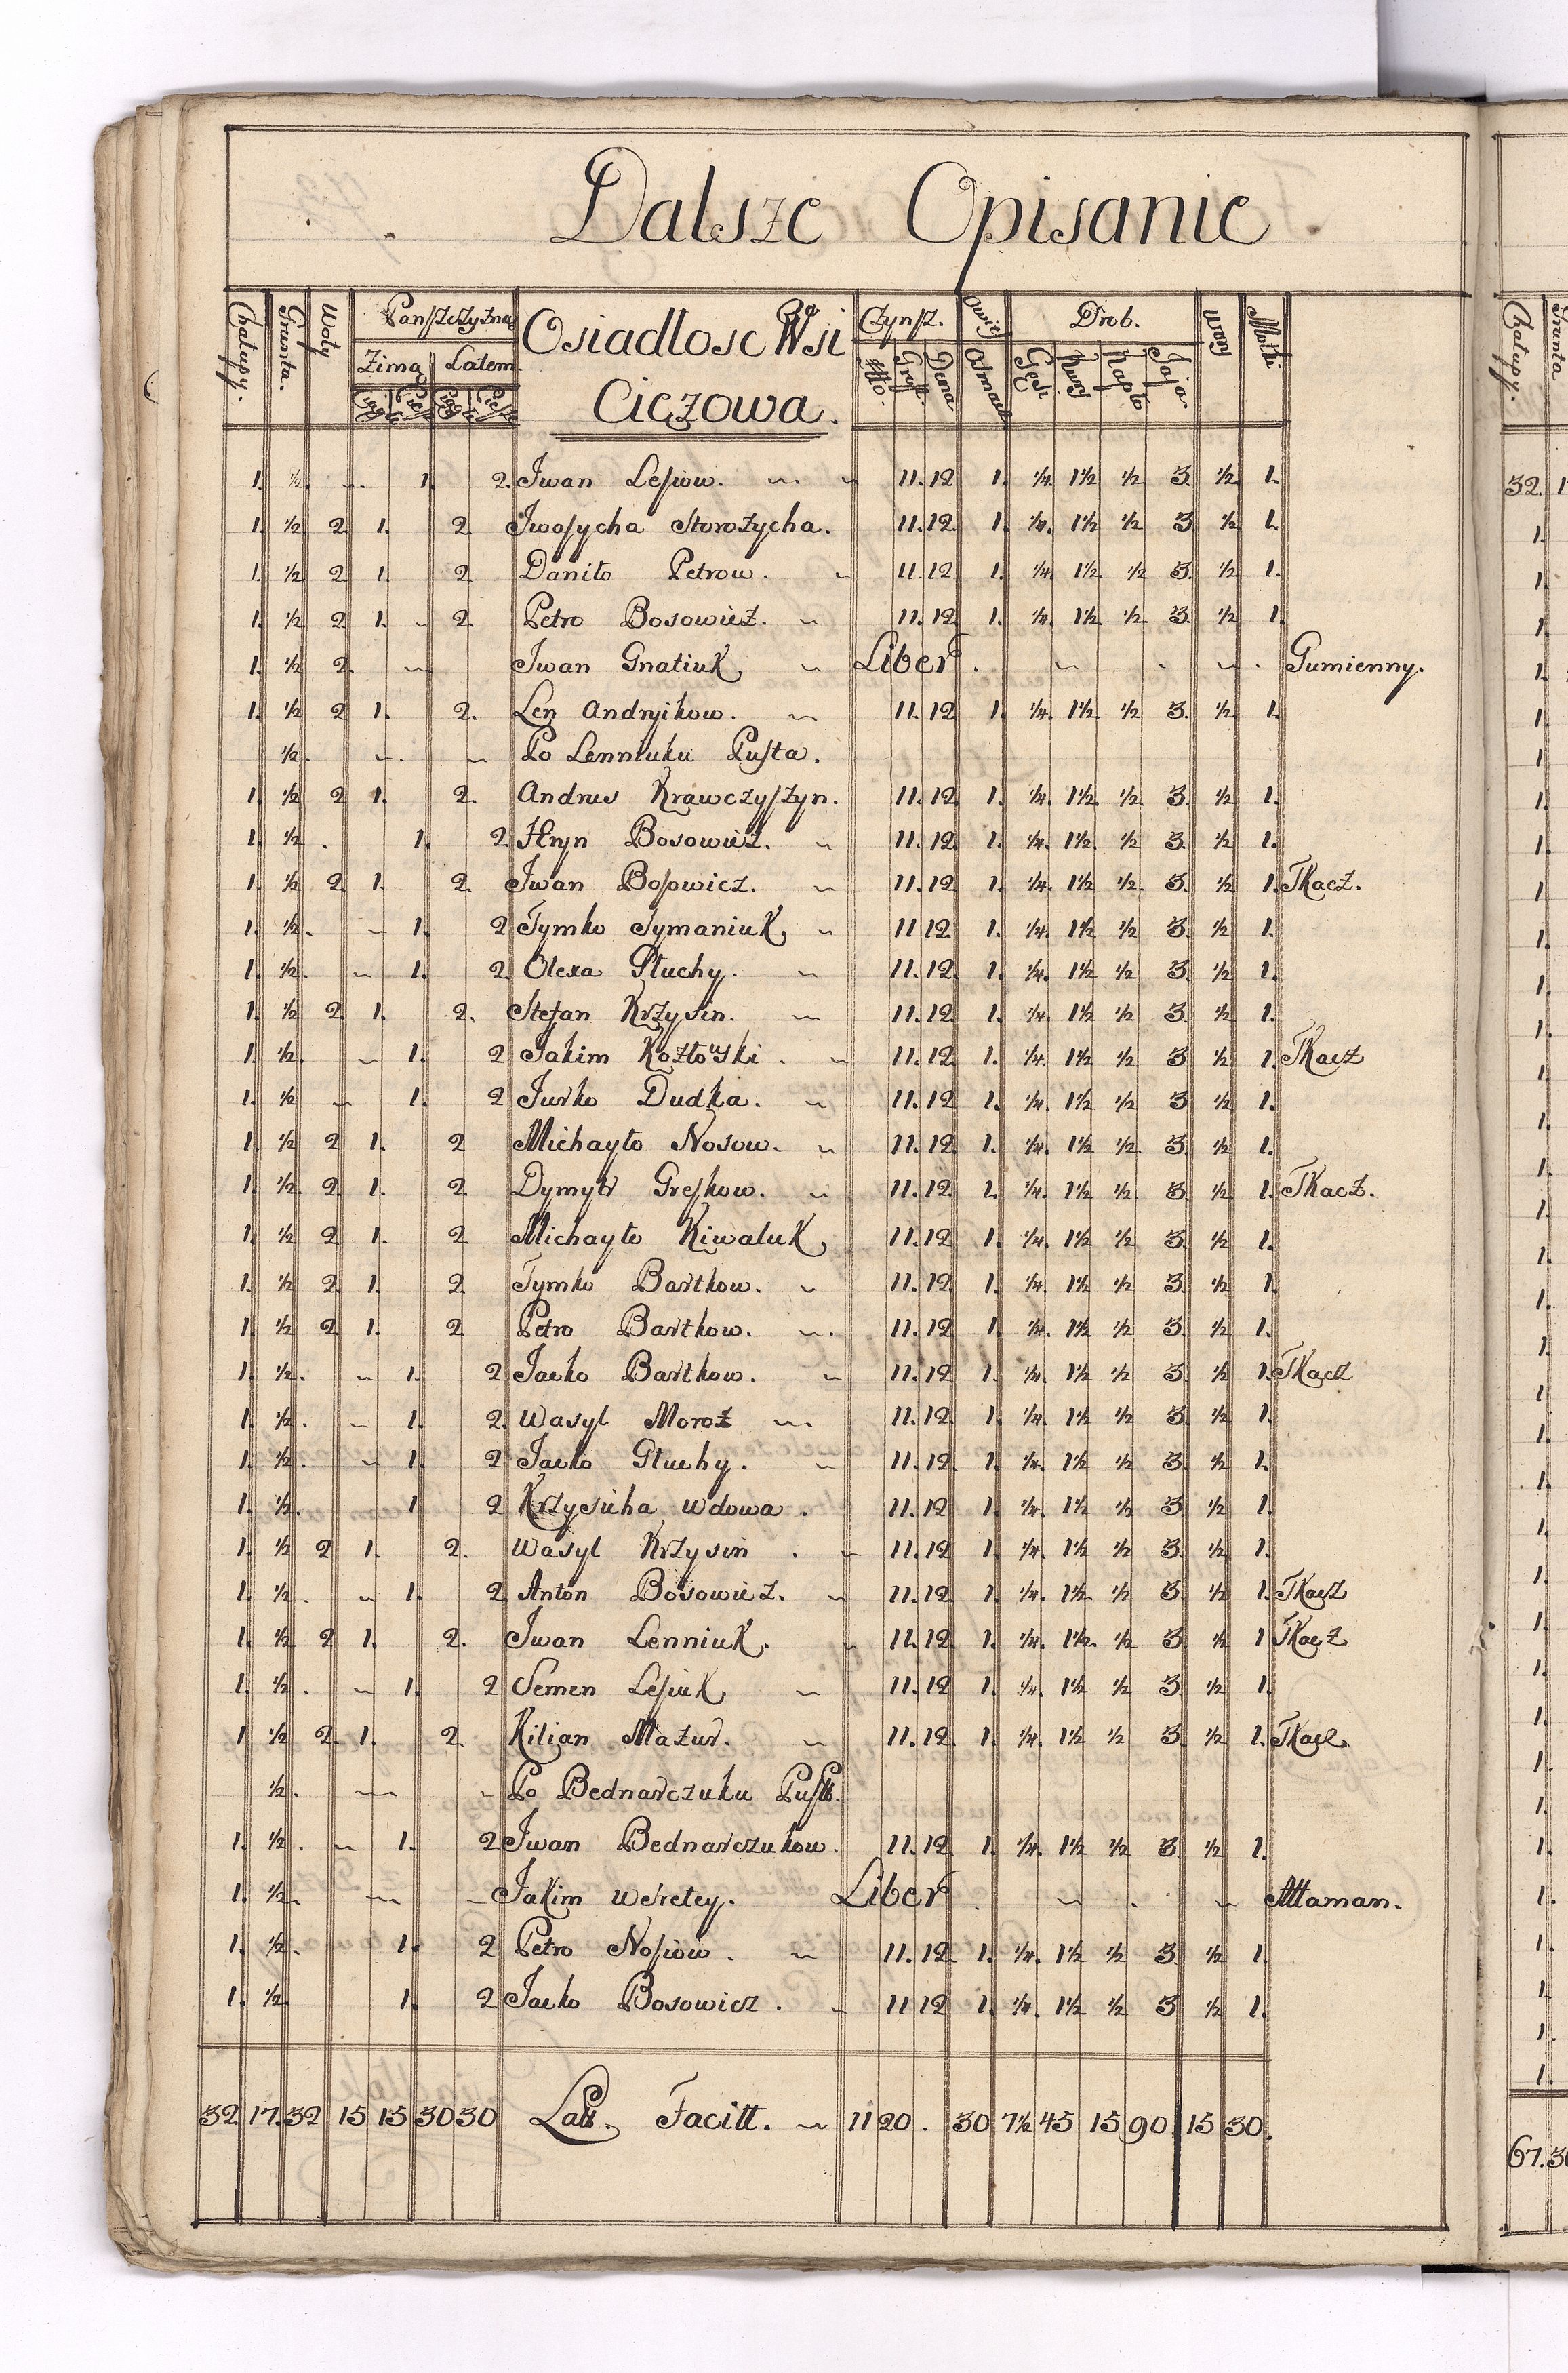 Dalsze Opisanie
Chałupy. Grunta. Woły Panszczyzna Osiadlosc Wsi Czynsz. Owies Drob. Motki
Zimą Latem. Ciczowa. Grosz Dena Gęsi Kury Kapło Jaja
1. ½. 1. 2. Iwan Lesiow. 11. 12 1. ¼ 1½ ½ 3. ½ 1.
1. ½ 2 1. 2. Iwasycha Storożycha. 11. 12. 1. ¼. 1½ ½ 3. ½ 1.
1. ½ 2 1. 2 Daniło Petrow. 11. 12 1. ¼ 1½ ½ 3. ½ 1.
1. ½ 2 1. 2. Petro Bosowicz. 11. 12. 1. ¼ 1½ ½ 3. ½ 1.
1. ½ 2. Iwan Gnatiuk Liber. Gumienny.
1. ½ 2 1. 2. Len Andryikow. 11. 12 1. ¼. 1½ ½ 3. ½ 1.
½. Po Lenniuku Pusta.
1. ½ 2 1. 2. Andrus Krawczyszyn. 11. 12 1. ¼. 1½ ½ 3. ½ 1.
1. ½ . 1. 2 Hryn Bosowicz. 11. 12. 1. ¼. 1½ ½ 3. ½ 1.
1. ½ 2 1. 2. Iwan Bosowicz. 11. 12 1. ¼. 1½ ½. 3. ½ 1. Tkacz.
1. ½. 1. 2 Tymko Symaniuk 11 12. 1. ¼. 1½ ½ 3. ½ 1.
1. ½. 1. 2 Olexa Głuchy. 11. 12. 1. ¼. 1½ ½ 3. ½ 1.
1. ½ 2 1. 2. Stefan Krzysin. 11. 12. 1. ¼. 1½ ½ 3. ½ 1.
1. ½. 1. 2 Jakim Kozłowski. 11. 12. 1. ¼. 1½ ½ 3 ½ 1. Tkacz
1. ½ 1. 2 Jurko Dudka. 11. 12 1. ¼. 1½ ½ 3 ½ 1.
1. ½ 2 1. 2 Michayło Nosow. 11. 12. 1. ¼. 1½ ½. 3. ½ 1.
1. ½. 2. 1. 2 Dymytr Greskow. 11. 12 1. ¼. 1½ ½ 3. ½ 1. Tkacz.
1. ½ 2 1. 2 Michayło Kiwaluk 11. 12 1. ¼. 1½ ½ 3. ½ 1.
1. ½ 2. 1. 2 Tymko Bartkow. 11. 12. 1. ¼ 1½ ½ 3. ½ 1.
1. ½ 2 1. 2 Petro Bartkow. 11. 12 1. ¼. 1½ ½ 3. ½ 1.
1. ½. 1. 2 Jacko Bartkow. 11. 12 1. ¼. 1½ ½ 3. ½ 1. Tkacz
1. ½. 1. 2. Wasyl Moroz 11. 12. 1. ¼. 1½ ½ 3. ½ 1.
1. ½. 1. 2 Jacko Głuchy. 11. 12. 1. ¼. 1½ ½ 3. ½ 1.
1. ½. 1 2 Krzysicha Wdowa. 11. 12 1. ¼. 1½ ½ 3. ½ 1.
1. ½ 2 1. 2. Wasyl Krzysin. 11. 12 1. ¼. 1½ ½ 3. ½ 1.
1. ½. 1. 2 Anton Bosowicz. 11. 12. 1. ¼. 1½. ½ 3. ½ 1. Tkacz
1. ½ 2 1. 2. Iwan Lenniuk. 11. 12. 1. ¼. 1½. ½ 3. ½ 1 Tkacz
1. ½. 1. 2 Semen Lesiuk 11. 12 1. ¼. 1½ ½ 3. ½ 1.
1 ½ 2. 1. 2 Kilian Mazur. 11. 12. 1. ¼. 1½ ½ 3. ½ 1. Tkacz
½. Po Bednarczuku Pusta.
1. ½. 1. 2 Iwan Bednarczukow. 11. 12. 1. ¼. 1½ ½ 3. ½ 1.
1. ½. Jakim Weretey. Liber Attaman.
1. ½. 1. 2 Petro Nosiow. 11. 12. 1. ¼. 1½ ½ 3. ½ 1.
1. ½ 1. 2 Jacko Bosowicz. 11 12 1. ¼. 1½ ½ 3 ½ 1.
32 17. 32 15 15 30 30 Facitt. 11 20. 30 7½ 45 15 90 15 30.